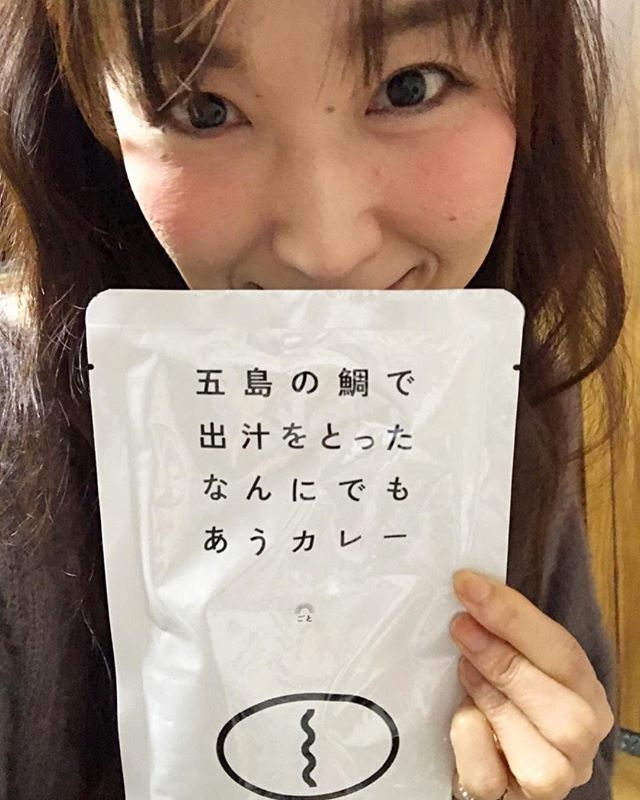 五島の鯛で
出汁をとった
なんにでも
あうカレー
ごと